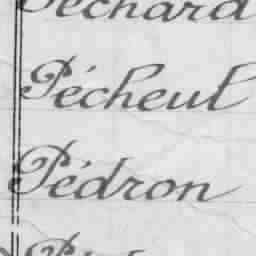 Péchard
Pécheul
Pédron